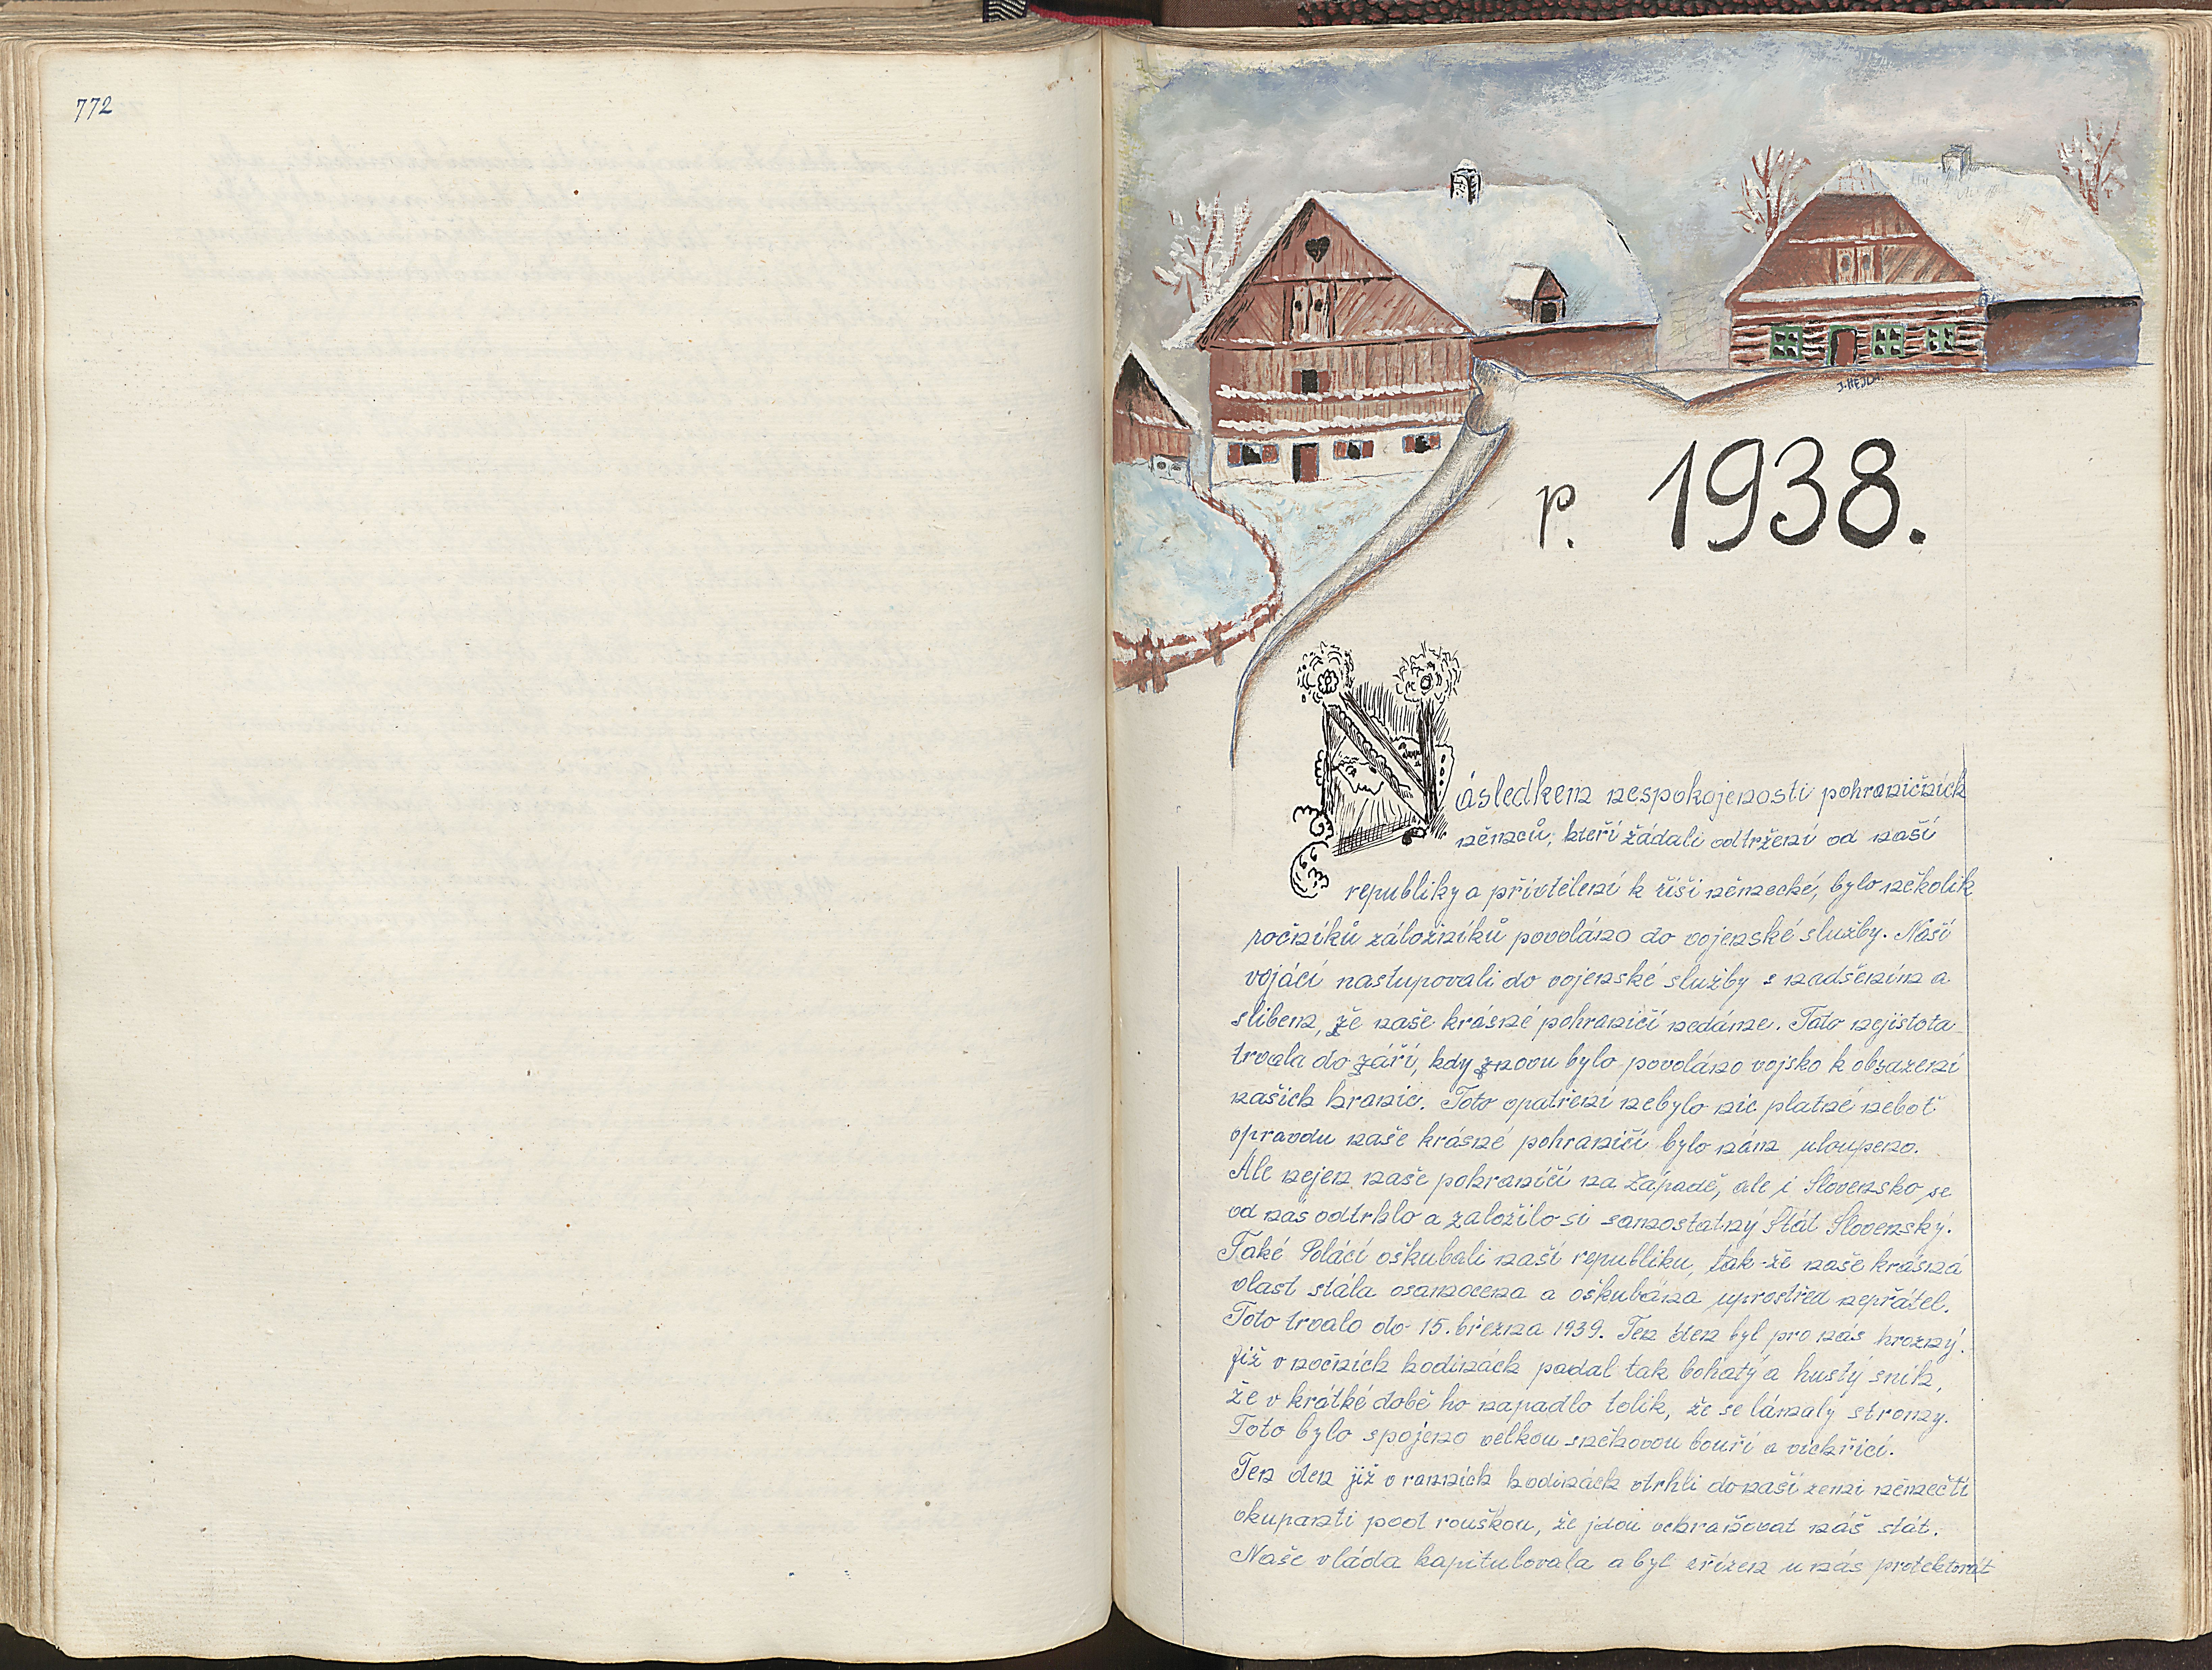 772
J. HEJL
r. 1938.
Následkem nespokojenosti pohraničních
němců, kteří žádali odtržení od naší
republiky a přivtělení k říši německé, bylo několik
ročníků záložníků povoláno do vojenské služby. Naši
vojáci nastupovali do vojenské služby s nadšením a
slibem, že naše krásné pohraničí nedáme. Tato nejistota
trvala do září, kdy znovu bylo povoláno vojsko k obsazení
našich hranic. Toto opatření nebylo nic platné neboť
opravdu naše krásné pohraničí bylo nám uloupeno.
Ale nejen naše pohraničí na Západě, ale i Slovensko se
od nás odtrhlo a založilo si samostatný Stát Slovenský.
Také Poláci oškubali naši republiku, tak-že naše krásná
vlast stála osamocena a oškubána uprostřed nepřátel.
Toto trvalo do 15. března 1939. Ten den byl pro nás hrozný.
Již v nočních hodinách padal tak bohatý a hustý sníh,
že v krátké době ho napadlo tolik, že se lámaly stromy.
Toto bylo spojeno velkou sněhovou bouří a vichřicí.
Ten den již v ranních hodinách vtrhli do naší zemi němečtí
okupanti pod rouškou, že jdou ochraňovat náš stát.
Naše vláda kapitulovala a byl zřízen u nás protektorát